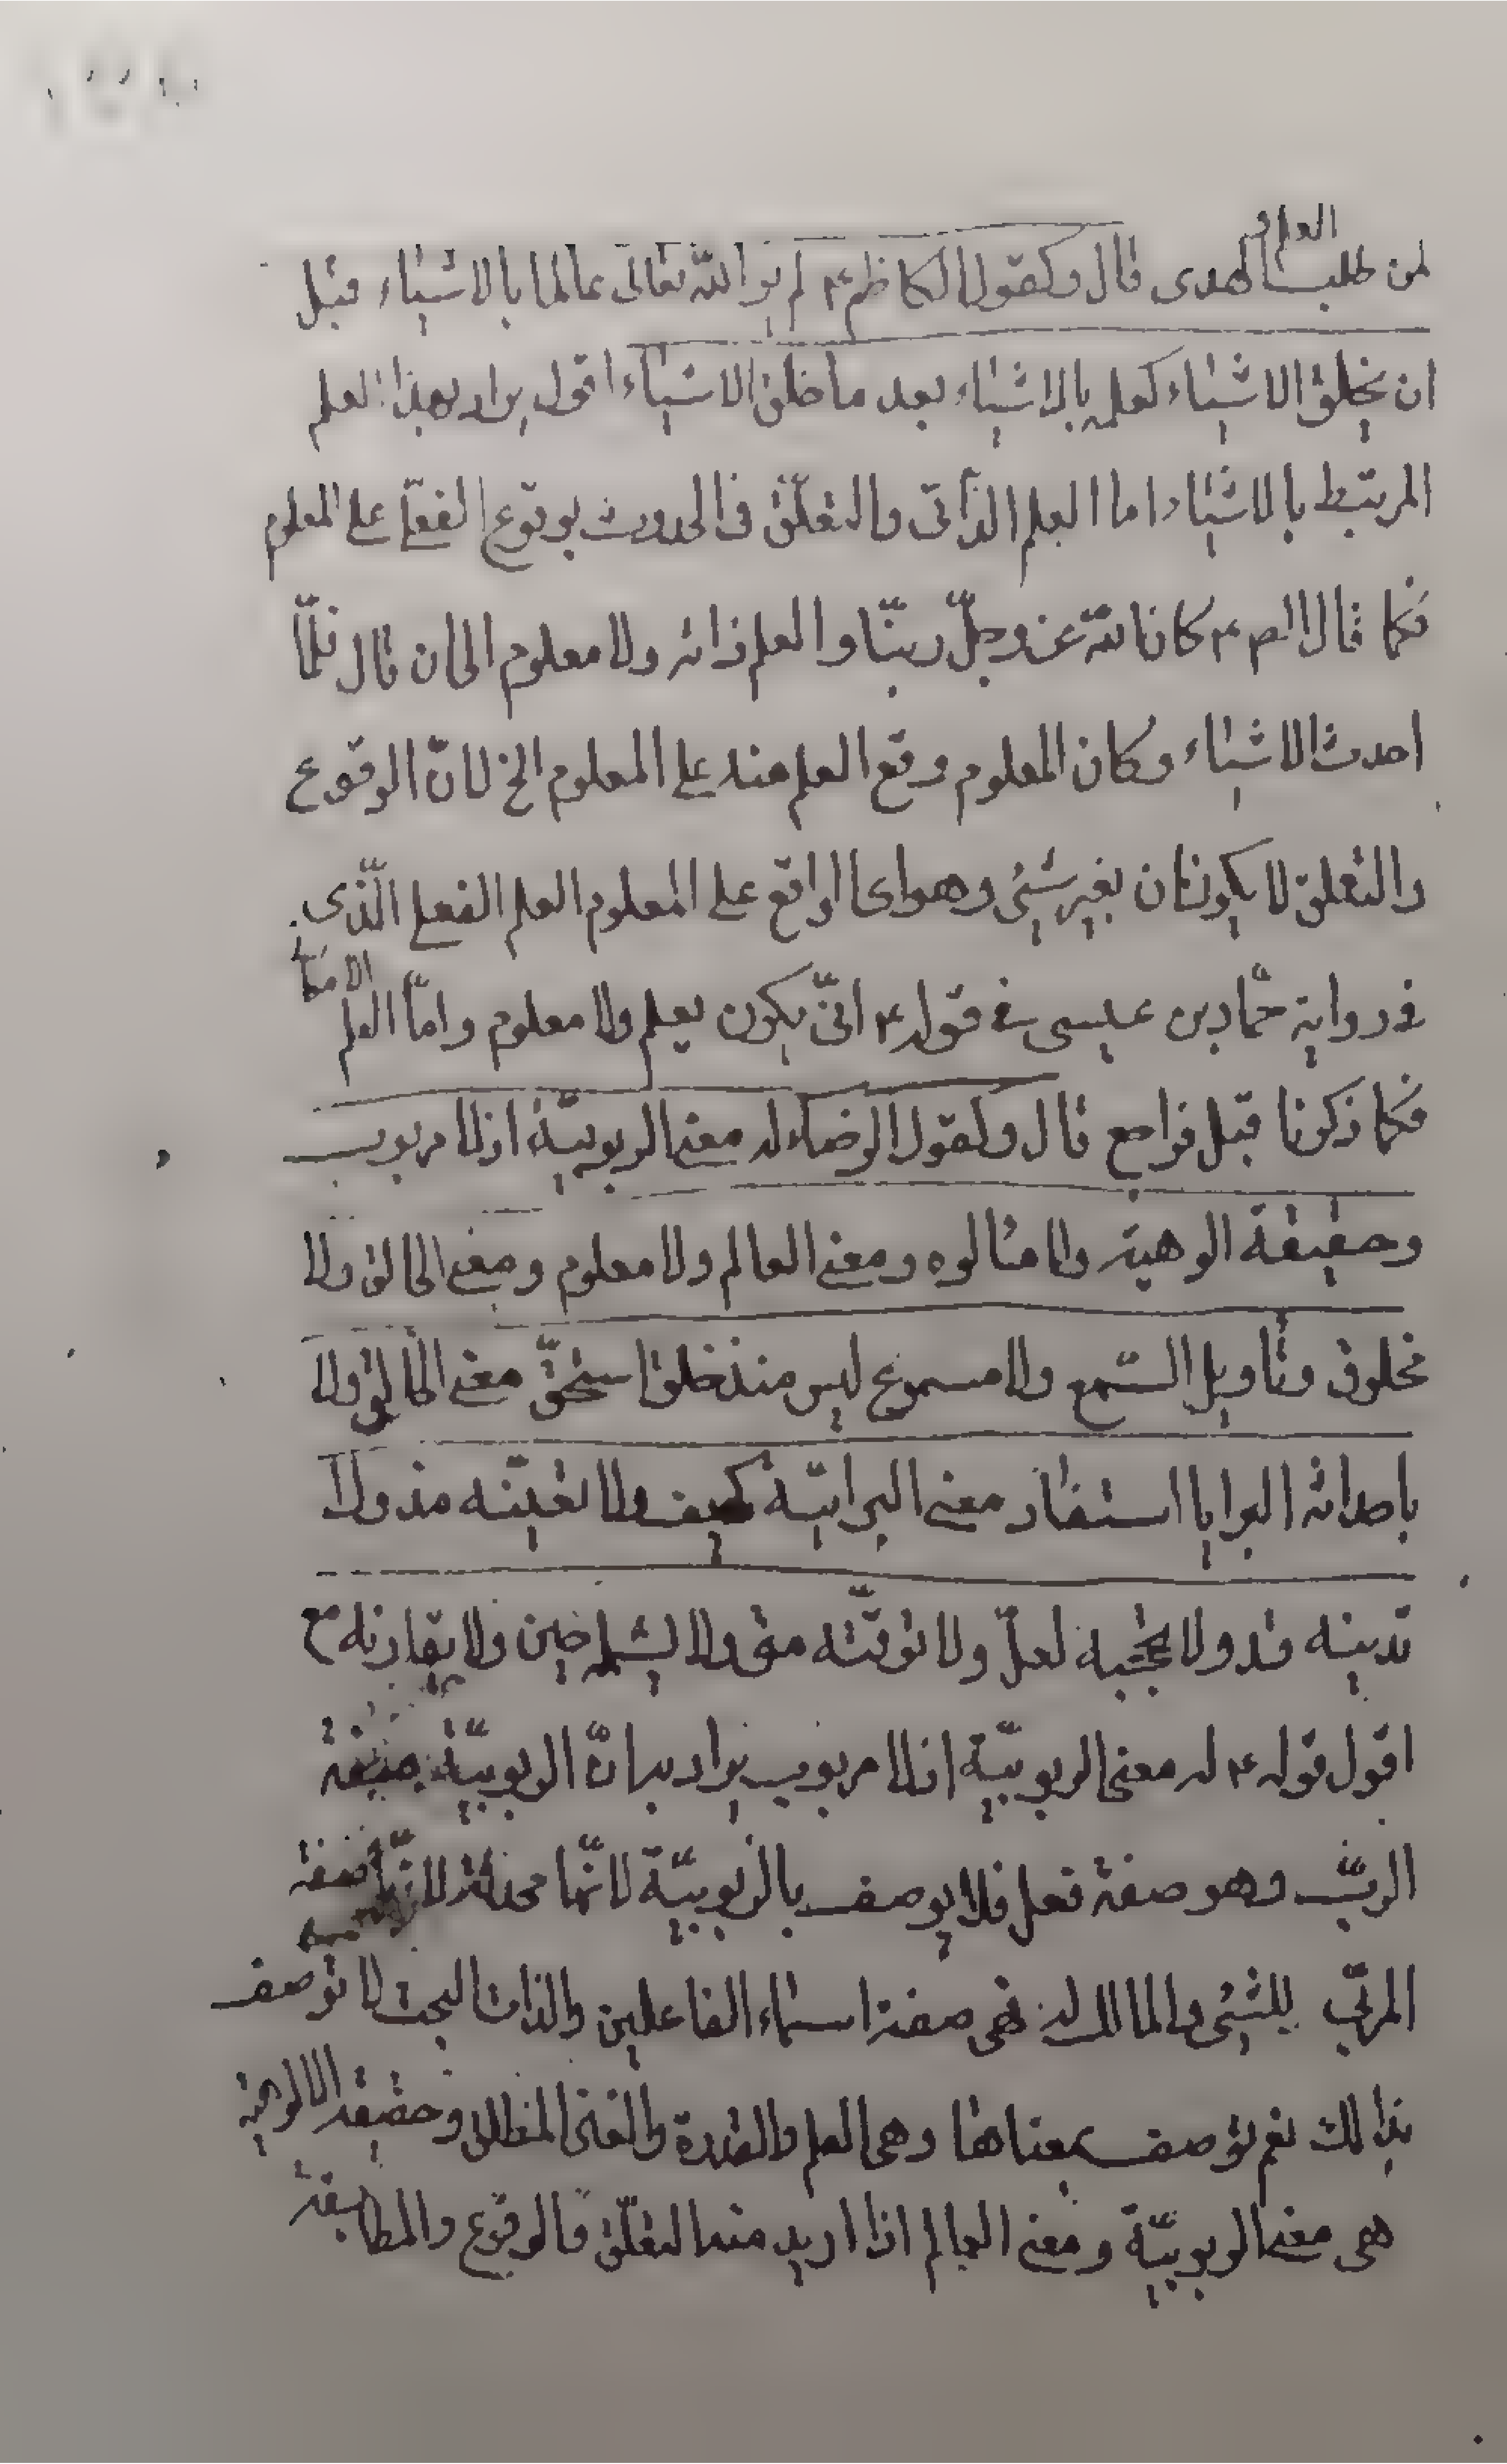 لمن طلب العلم و الهدى قال وكقول الكاظم ۴ لم يزل الله تعالى عالما بالاشياء قبل
ان يخلق الاشياء كعلمه بالاشياء بعد ما خلق الاشياء اقول يراد بهذا العلم
المرتبط بالاشياء اما العلم الذاتى والتعلّق فى الحدوث بوقوع الفعلى على المعلوم
فكما قال الص ۴ كان الله عز وجلّ ربّنا والعلم ذاته ولا معلوم الى ان قال فلمّا
احدث الاشياء وكان المعلوم وقع العلم منه على المعلوم الخ لانّ الوقوع
والتعلق لا يكونان بغير شيئ وهو اى الواقع على المعلوم العلم الفعلى الّذى
فى رواية حمّاد بن عيسى فى قوله ۴ انّى يكون يعلم ولا معلوم وامّا العلم
فكما ذكرنا قبل فراجع قال وكقول الرضا ۴ له معنى الربوبيّة اذ لا مربوب
وحقيقة الوهية ولا مألوه ومعنى العالم ولا معلوم ومعنى الخالق ولا
مخلوق وتأويل السّمع ولا مسموع ليس منذ خلق استحقّ معنى الخالق ولا
باحداثه البرايا استفاد معنى البرائيّة كيف ولا تغيّبه مذ ولا
تدنيه قد ولا يحجبه لعلّ ولا توقّته متى ولا يشمله حين ولا يقارنه مع
اقول قوله ۴ له معنى الربوبيّة اذ لا مربوب يراد به انّ الربوبيّة صفة
الربّ وهو صفة فعل فلا يوصف بالربوبيّة لانّها محدثة لانّها صفة
المربّى للشيئ والمالك له فهى صفة اسماء الفاعلين والذات البحت لا توصف
بذالك نعم توصف بمعناها وهى العلم والقدرة والغنى المطلق وحقيقه الالوهية
هى معنى الربوبيّة ومعنى العالم اذا اريد منه التعلّق والوقوع والمطابقة